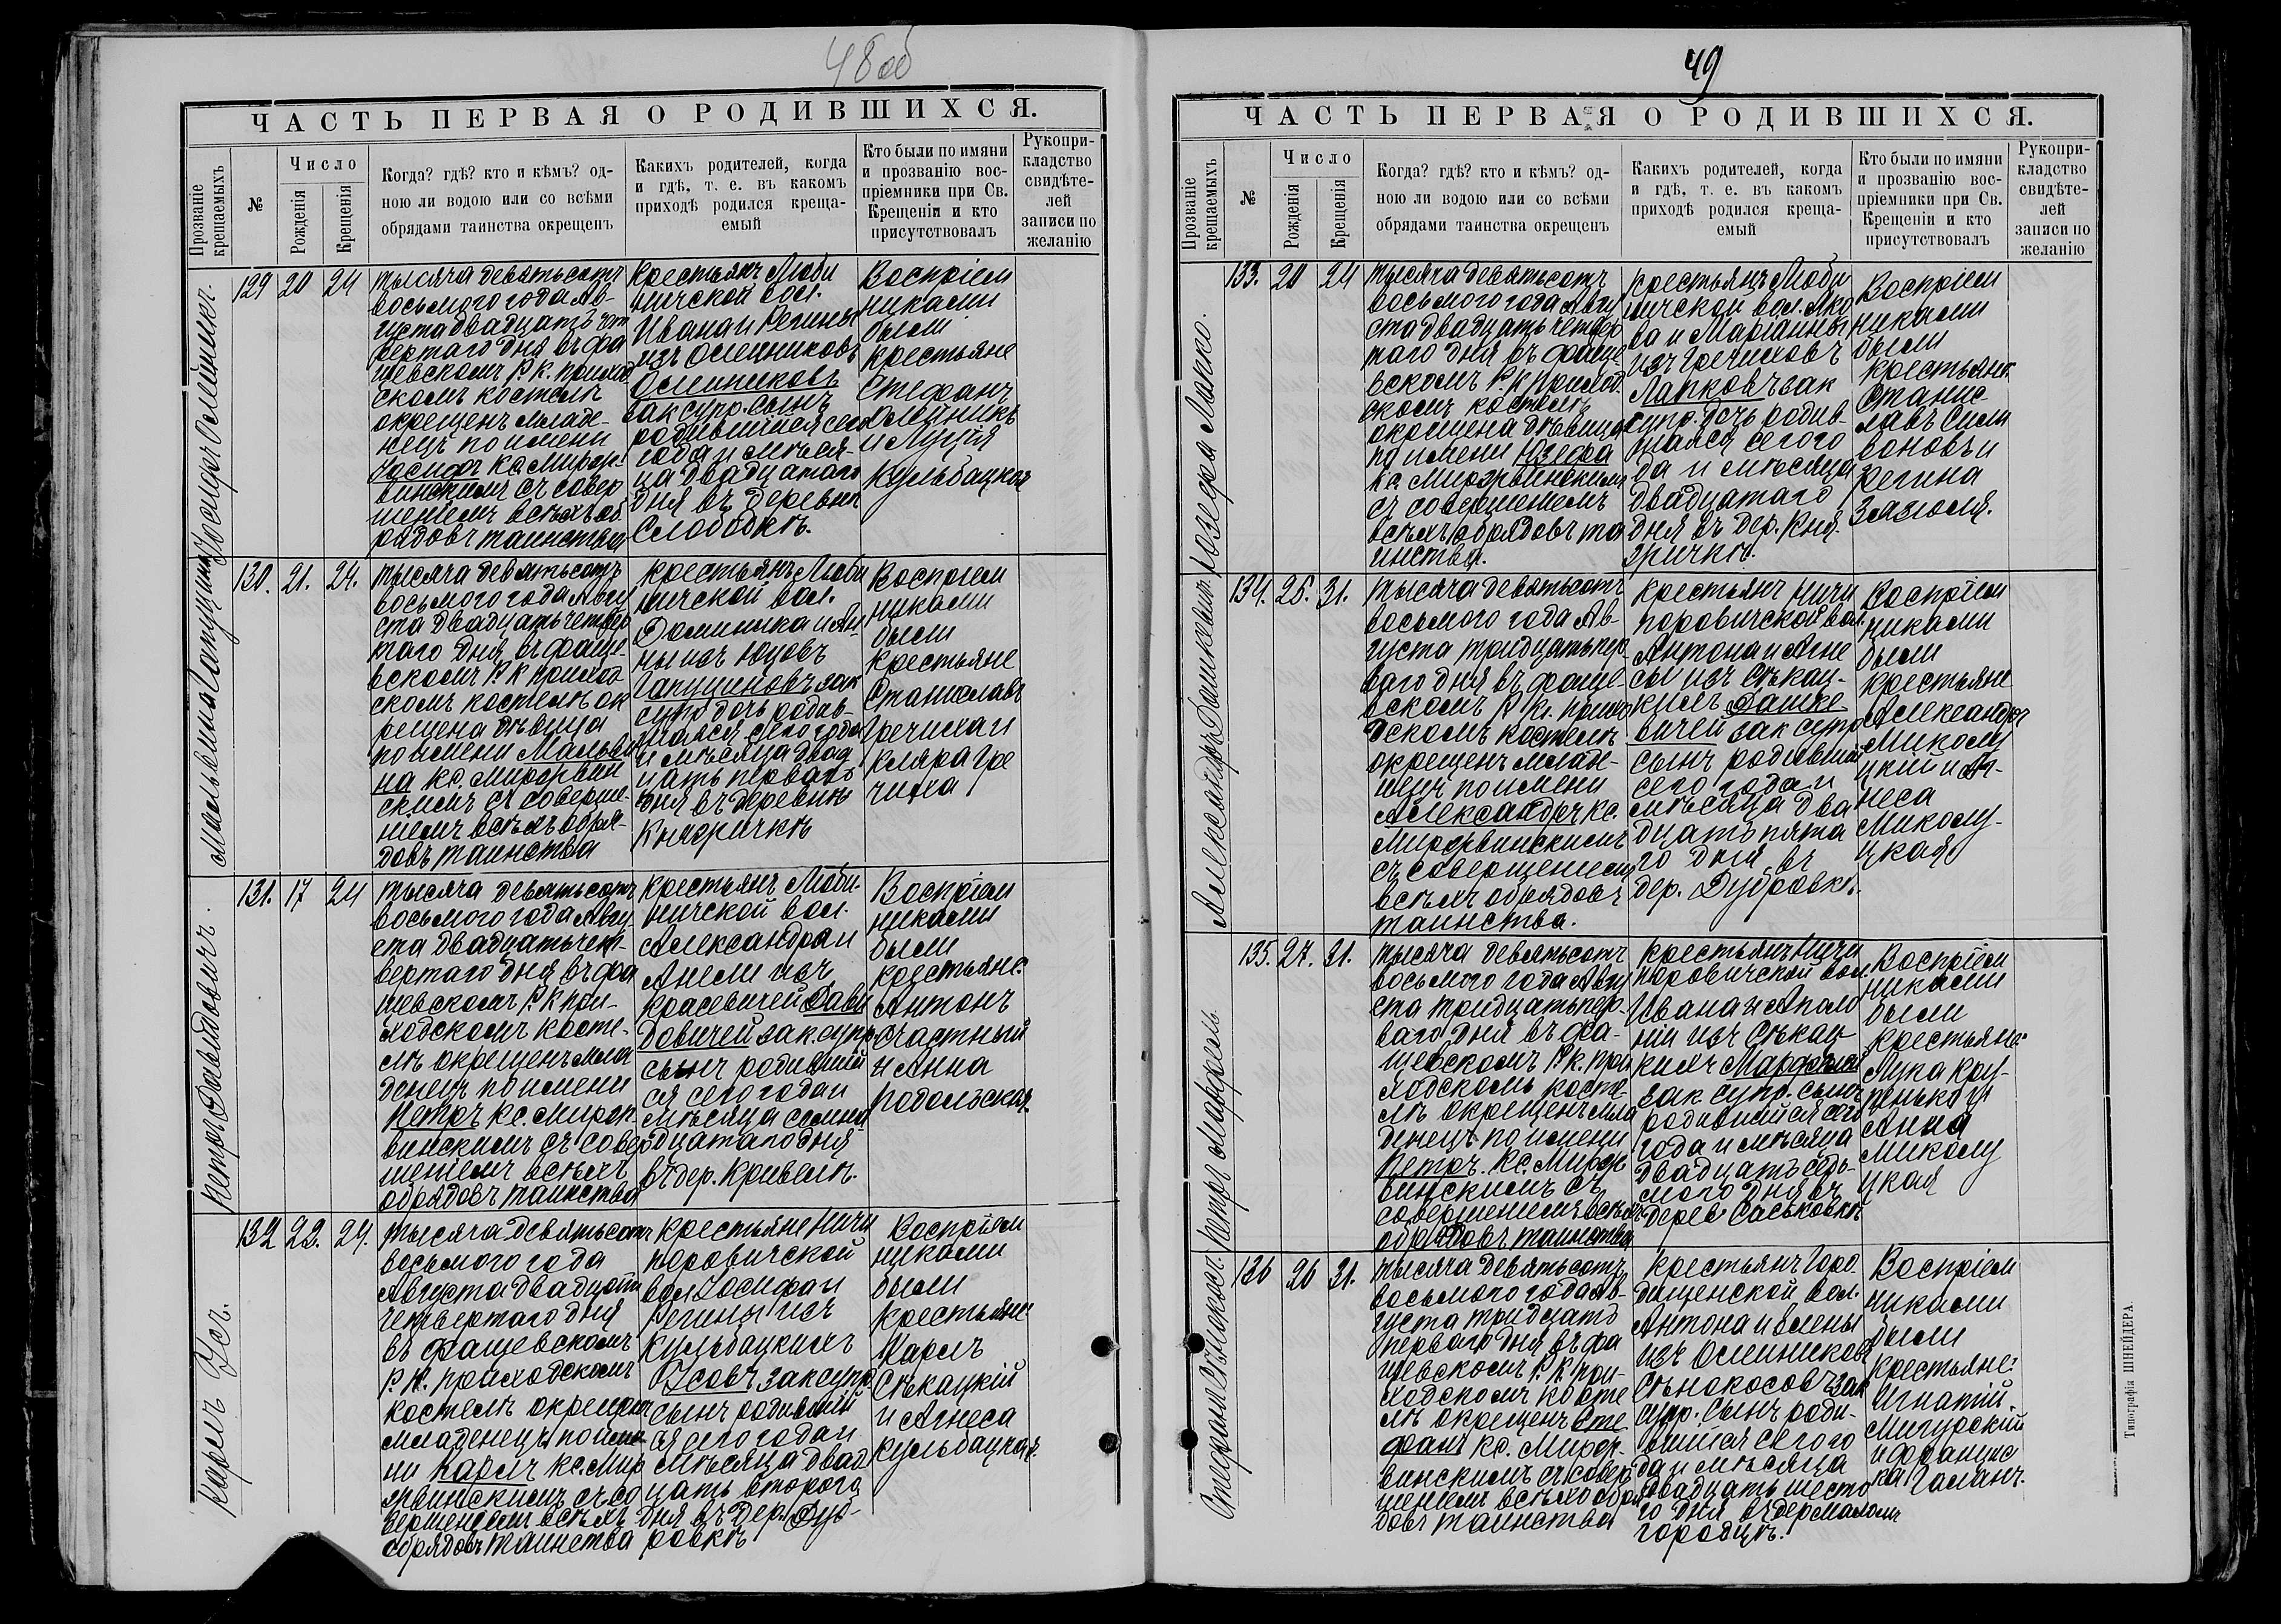 48 об
ЧАСТЬ ПЕРВАЯ О РОДИВШИХСЯ.
Прозваніе крещаемыхъ
№
Число
Рожденія
Крещенія
Когда? гдѣ? кто и кѣмъ? од-
ною ли водою или со всѣми
обрядами таинства окрещенъ
Какихъ родителей, когда
и гдѣ, т. е. въ какомъ
приходѣ родился креща-
емый
Кто были по имяни
и прозванію вос-
пріемники при Св.
Крещеніи и кто
присутствовалъ
Рукопри-
кладство
свидѣте-
лей
записи по
желанію
Іосифъ Олейникъ.
129 20 24
тысяча девятьсотъ
восьмого года Ав-
густа двадцать чет
вертаго дня въ фа
щевскомъ Р. К. приход
скомъ костелѣ
окрещенъ младе-
нецъ по имени
Іосифъ кс. Мирор-
винскимъ съ совер
шеніемъ всѣхъ об
рядовъ таинства
крестьянъ Люби
ничской вол.
Ивана и Регины
изъ Олейниковъ
Олейниковъ
зак супр. сынъ
родившійся сего
года и мѣся-
ца двадцатаго
дня въ деревнѣ
Слободкѣ.
Воспріем
никами
были
крестьяне
Стефанъ
Олейникъ
и Луція
Кульбацкая
Мальвина Гапущина
130. 21. 24.
тысяча девятьсотъ
восьмого года Авгу
ста двадцать четвер
таго дня въ фаще-
вскомъ Р К приход
скомъ костелѣ ок
рещена дѣвица
по имени Мальви
на кс. Мирорвин
скимъ съ соверше-
ніемъ всѣхъ обря-
довъ таинства
крестьянъ Люби
ничской вол.
Доминика и Ан
ны изъ Юцовъ
Гапущиновъ зак
супр дочь родив-
шаяся сего года
и мѣсяца двад
цать перваго
дня въ деревнѣ
Княжичкѣ
Воспріем
никами
были
крестьяне
Станиславъ
Гречиха и
Кляра Гре
чиха
Петръ Давыдовичъ.
131. 17 24
тысяча девятьсотъ
восьмого года Авгу
ста двадцать чет-
вертаго дня въ фа
щевскомъ Р К при-
ходскомъ косте-
лѣ окрещенъ мла
денецъ по имени
Петръ кс. Мирор-
винскимъ съ совер
шеніемъ всѣхъ
обрядовъ таинства
крестьянъ Люби-
ничской вол.
Александра и
Анели изъ
Красевичей Давы
довичей зак. супр
сынъ родившій
ся сего года и
мѣсяца семна
дцатаго дня
въ дер. Кривелѣ.
Воспріем
никами
были
крестьяне:
Антонъ
Счастный
и Анна
Подольская.
Карлъ Усъ.
132 22. 24.
тысяча девятьсотъ
восьмого года
Августа двадцать
четвертаго дня
въ Фащевскомъ
Р. К. приходскомъ
костелѣ окрещенъ
младенецъ по име
ни Карлъ кс. Мир
орвинскимъ съ со
вершеніемъ всѣхъ
обрядовъ таинства
крестьяне Ничи
поровичской
вол Іосифа и
Регины изъ
Кульбацкихъ
Усовъ зак супр
сынъ родившій
ся сего года и
мѣсяца двад
цать второго
дня въ дер. Дуб-
ровкѣ
Воспріем
никами
были
крестьяне
Карлъ
Сѣкацкій
и Агнеса
Кульбацкая.
49
ЧАСТЬ ПЕРВАЯ О РОДИВШИХСЯ.
Прозваніе крещаемыхъ
№
Число
Рожденія
Крещенія
Когда? гдѣ? кто и кѣмъ? од-
ною ли водою или со всѣми
обрядами таинства окрещенъ
Какихъ родителей, когда
и гдѣ, т. е. въ какомъ
приходѣ родился креща-
емый
Кто были по имяни
и прозванію вос-
пріемники при Св.
Крещеніи и кто
присутствовалъ
Рукопри-
кладство
свидѣте-
лей
записи по
желанію
Юзефа Лапко.
133. 20 24
тысяча девятьсотъ
восьмого года Авгу
ста двадцать четвер
таго дня въ фаще
вскомъ Р. К приход.
скомъ костелѣ
окрещена дѣвица
по имени Юзефа
кс. Мирорвинскимъ
съ совершеніемъ
всѣхъ обрядовъ та
инства.
крестьянъ Люби
ничской вол. Яко
ва и Маріанны
изъ Гречиховъ
Лапковъ зак
супр. дочь родив-
шаяся сего го
да и мѣсяца
двадцатаго
дня въ дер. Кня-
жичкѣ.
Воспріем
никами
были
крестьяне:
Станис
лавъ Сили
воновъ и
Регина
Зязюля.
Александръ Дашкевичъ
134. 25. 31.
тысяча девятьсотъ
восьмого года Ав-
густа тридцать пер
ваго дня въ фаще-
вскомъ Р К. прихо
дскомъ костелѣ
окрещенъ младе-
нецъ по имени
Александръ кс.
Мирорвинскимъ
съ совершеніемъ
всѣхъ обрядовъ
таинства.
крестьянъ Ничи
поровичской вол.
Антона и Агне
сы изъ Сѣкац-
кихъ Дашке
вичей зак супр
сынъ родившій
сего года и
мѣсяца два
дцать пята
го дня въ
дер. Дубровкѣ.
Воспріем
никами
были
крестьяне
Александръ
Миколу
цкій и Аг-
неса
Миколу-
цкая
Петръ Марфель
135. 27. 31.
тысяча девятьсотъ
восьмого года Авгу
ста тридцать пер-
ваго дня въ фа-
щевскомъ Р. К. при
ходскомъ косте-
лѣ окрещенъ мла
денецъ по имени
Петръ. кс. Мирор
винскимъ съ
совершеніемъ всѣхъ
обрядовъ таинства
крестьянъ Ничи
поровичской вол.
Ивана и Аполо
ніи изъ Сѣкац-
кихъ Марфелей
зак супр. сынъ
родившійся сего
года и мѣсяца
двадцать седь-
мого дня въ
дерев Саськовкѣ
Воспріем
никами
были
крестьяне:
Лука Кру-
пенько и
Анна
Миколу
цкая
Стефанъ Сѣнокосъ
136 26 31.
тысяча девятьсотъ
восьмого года Ав-
густа тридцать
перваго дня въ фа
щевскомъ Р. К. при-
ходскомъ косте
лѣ окрещенъ Сте
фанъ кс. Мирор-
винскимъ съ совер
шеніемъ всѣхъ обря
довъ таинства
крестьянъ Горо
дищенской вол.
Антона и Елены
изъ Олейниковъ
Сѣнокосовъ зак
супр. сынъ роди-
вшійся сего го
да и мѣсяца
двадцать шесто
го дня въ дер Маломъ
городцѣ.
Воспріем
никами
были
крестьяне:
Игнатій
Мигурскій
и Францис
ка Галанъ.
Типографія ШНЕЙДЕРА.